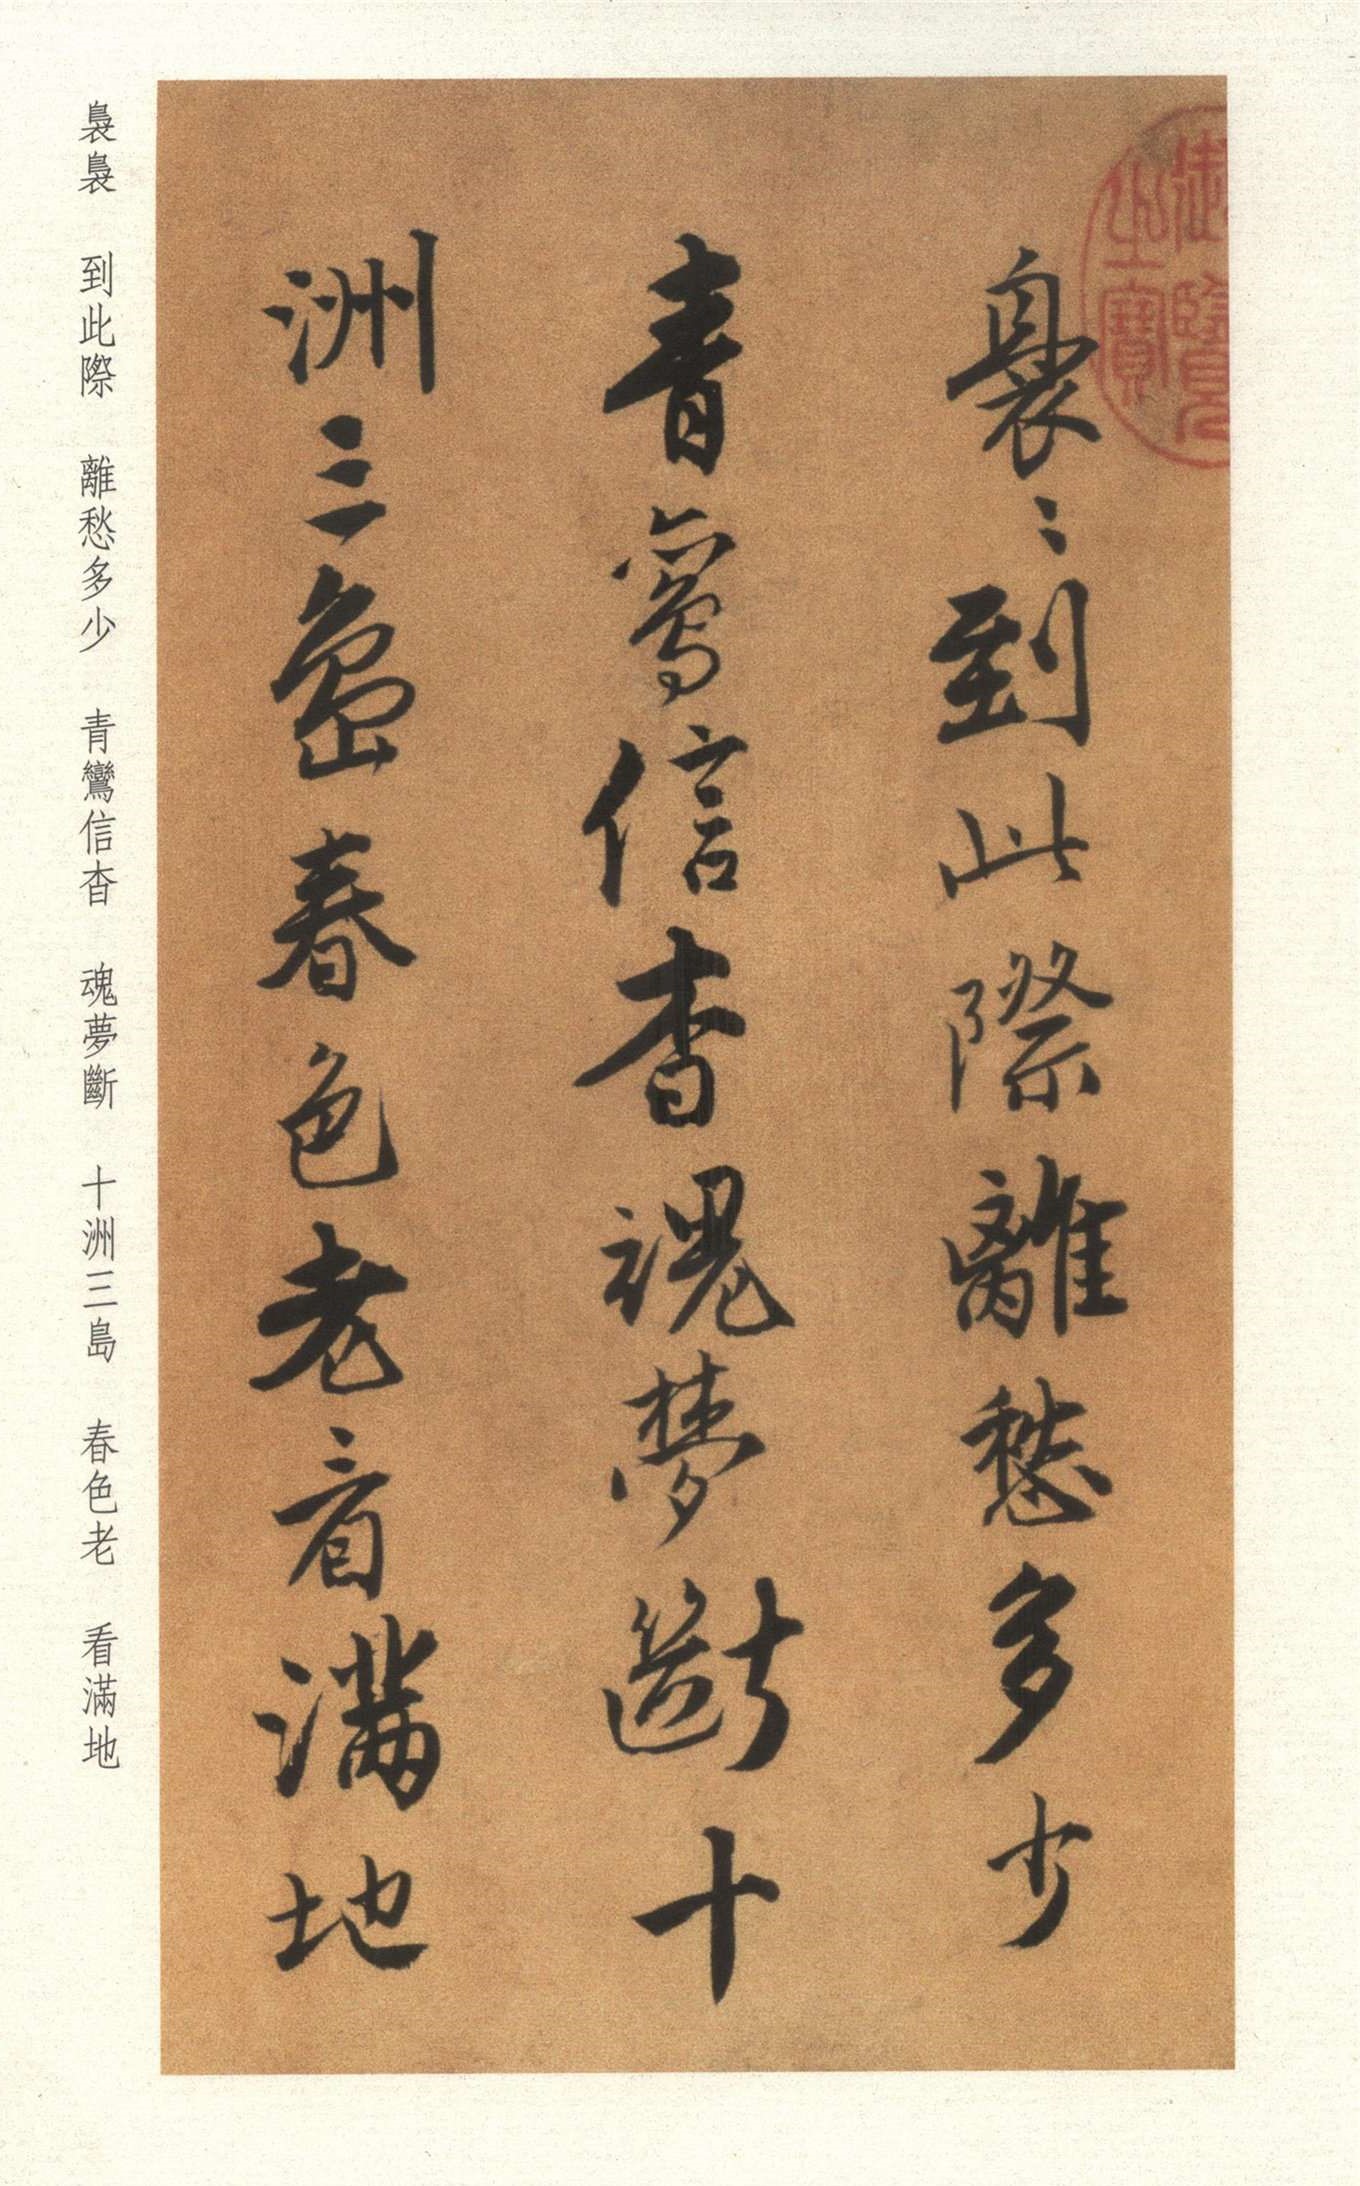 裊〻到此際離愁多少
青鸞信杳魂夢斷十
洲三島春色老看滿地
御覽之寶
裊裊　到此際　離愁多少　青鸞信杳　魂夢斷　十洲三島　春色老　看滿地